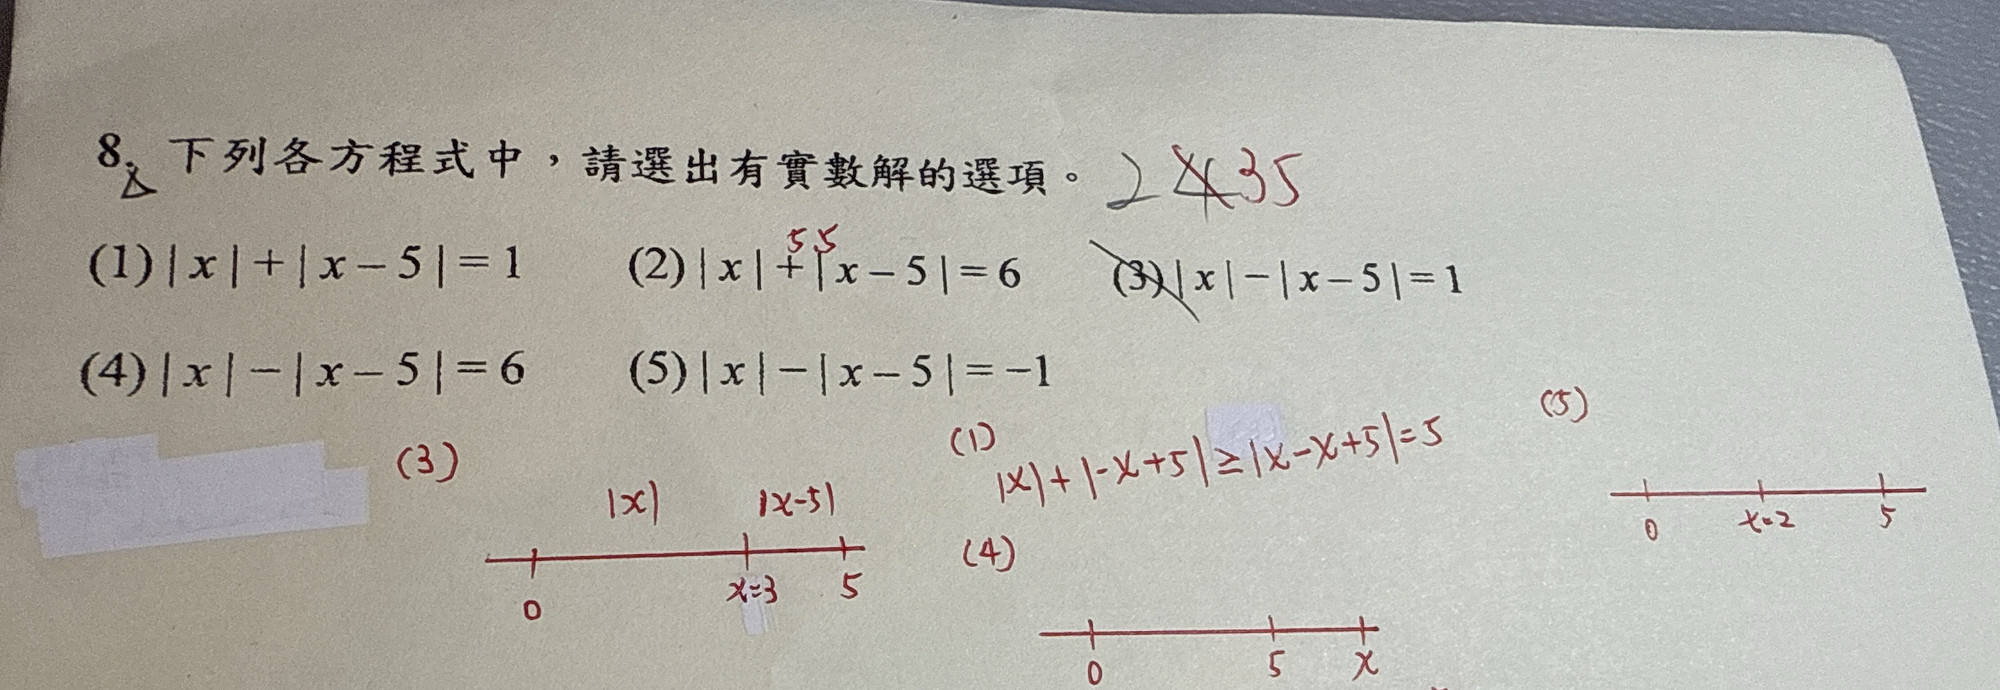 8. 下列各方程式中，請選出有實數解的選項。 2 4 35
(1)|x|+|x-5|=1 (2)|x|+|x-5|=6 (3)|x|-|x-5|=1
5 5
(4)|x|-|x-5|=6 (5)|x|-|x-5|=-1
(3)
|x| |x-5|
0 x=3 5
(1)
|x|+|-x+5|≥|x-x+5|=5
(4)
0 5 x
(5)
0 x=2 5